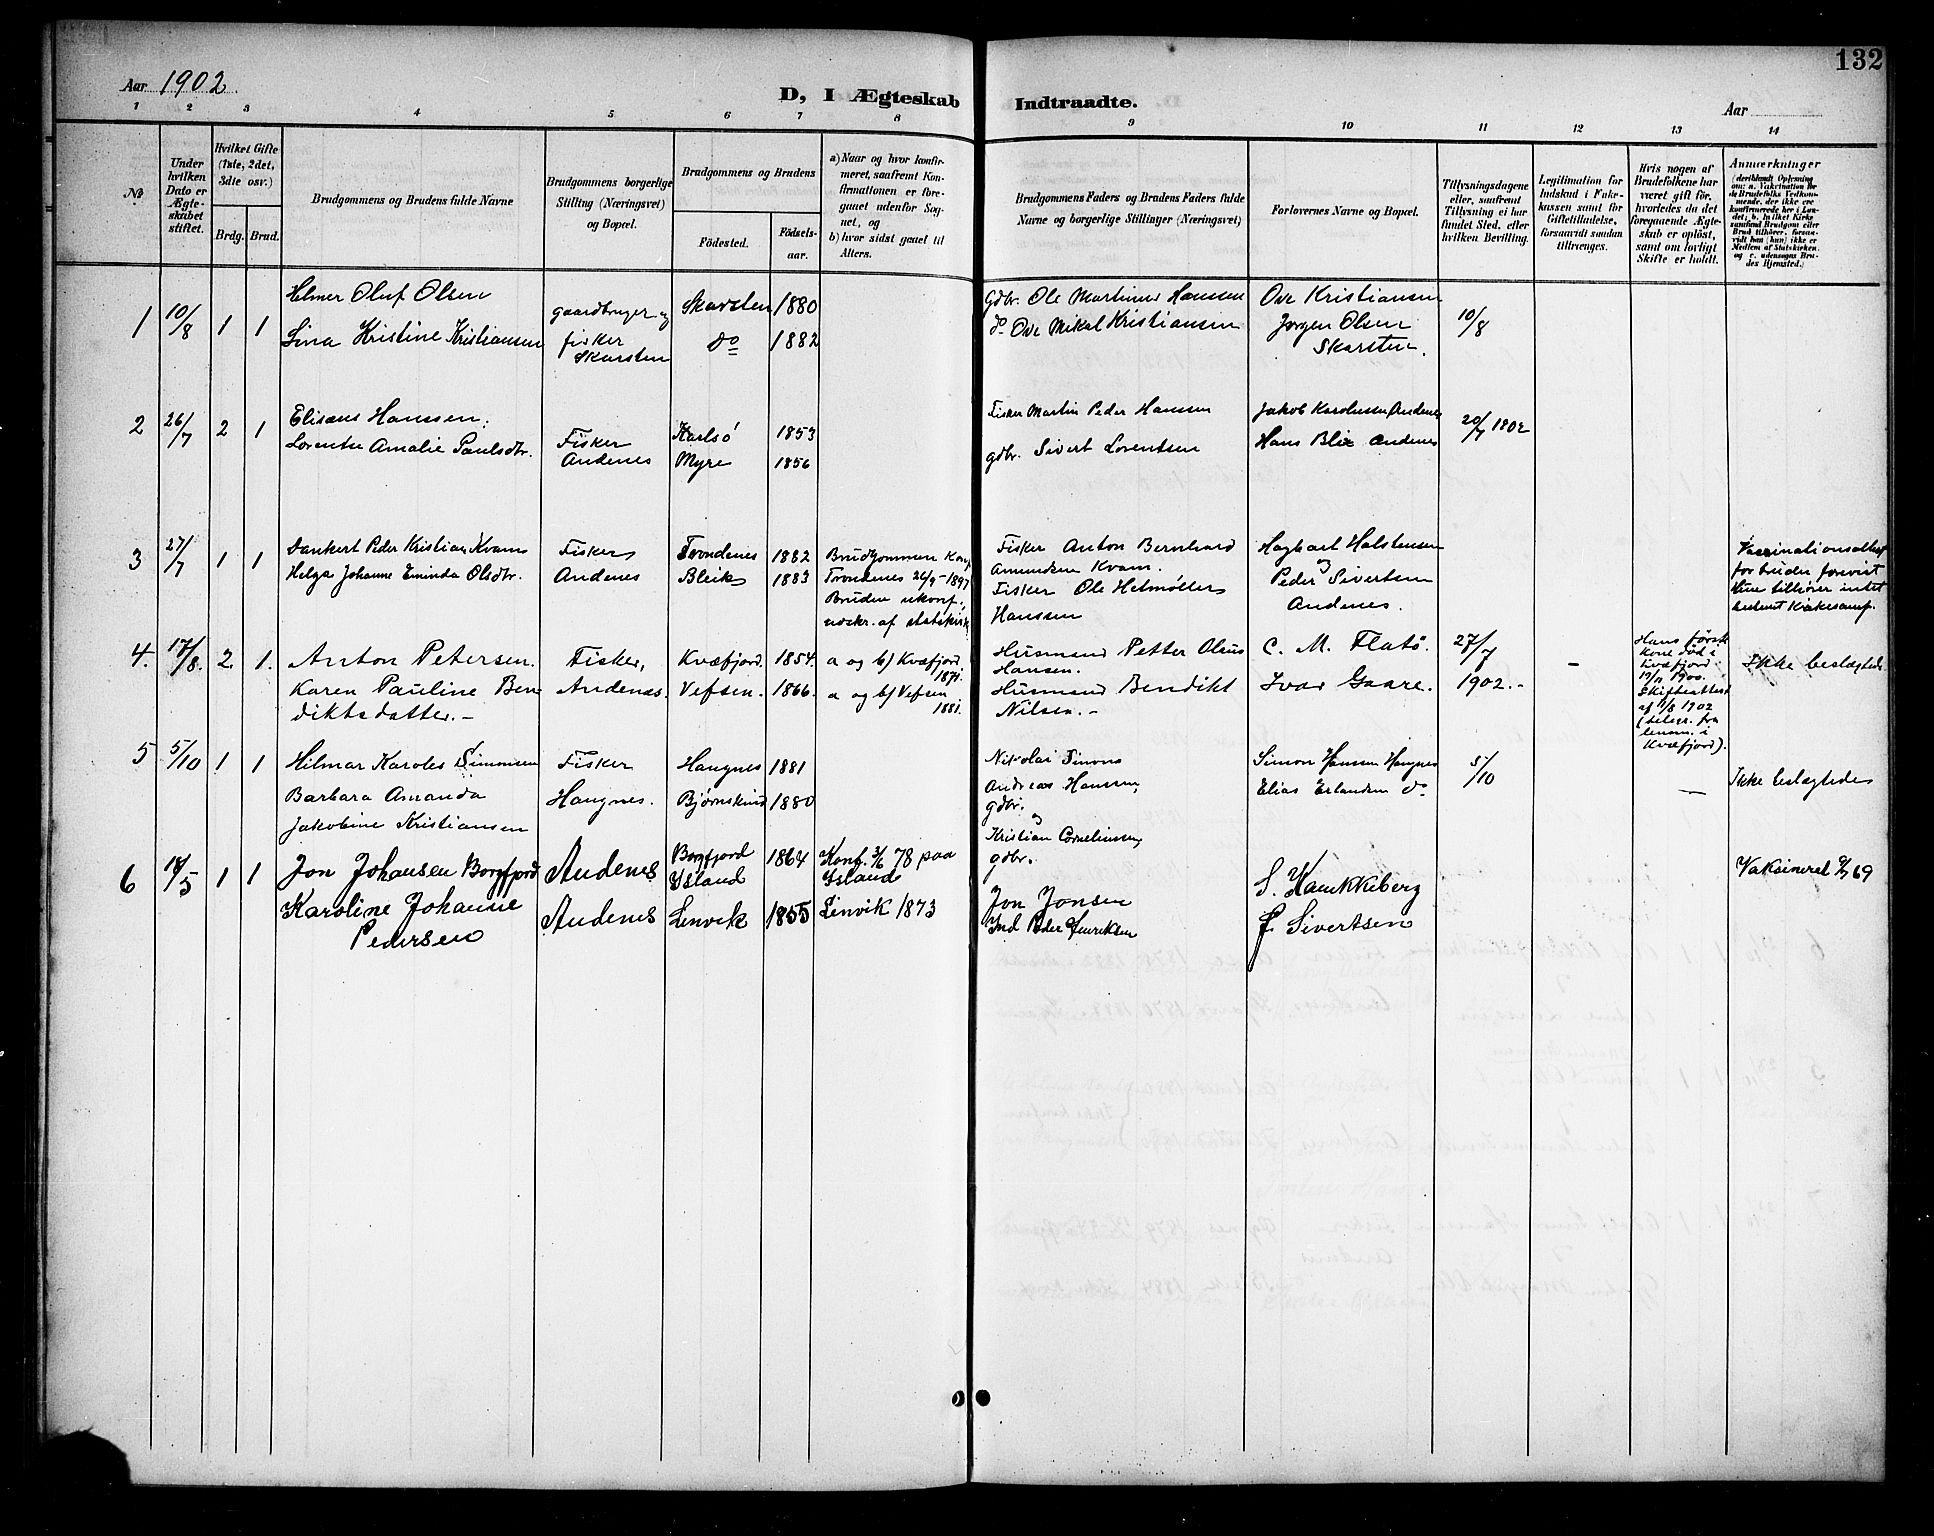 132
Aar 1902.
D, I Ægteskab Indtraadte.
Aar
1 2 3 4 5 6 7 8 9 10 11 12 13 14
No
Under hvilken Dato er Ægteskabet stiftet.
Hvilket Gifte (1ste, 2det, 3die osv.)
Brdg. Brud.
Brudgommens og Brudens fulde Navne
Brudgommens borgerlige Stilling (Næringsvei) og Bopæl.
Brudgommens og Brudens
Födested.
Födsels-aar.
a) Naar og hvor konfirmeret, saafremt Konfirmationen er foregaaet udenfor Sognet, og
b) hvor sidst gaaet til Alters.
Brudgommens Faders og Brudens Faders fulde Navne og borgerlige Stillinger (Næringsvei)
Forlovernes Navne og Bopæl.
Tillysningsdagene eller, saafremt Tillysning ei har fundet Sted, efter hvilken Bevilling.
Legitimation for Indskud i Enkekassen samt for Giftetilladelse, forsaavidt saadan tiltrænges.
Hvis nogen af Brudefolkene har været gift för, hvorledes da det foregaaende Ægteskab er oplöst, samt om lovligt Skifte er holdt.
Anmærkninger (deriblandt Oplysning om: a. Vaksination for de Brudefolks Vedkommende, der ikke ere konfirmerede her i Landet; b. hvilket Kirkesamfund Brudgom eller Brud tilhörer, forsaavidt han (hun) ikke er Medlem af Statskirken, og c. udensogns Brudes Hjemsted.)
1 10/8 1 1
Helmer Oluf Olsen
Lina Kristine Kristiansen
gaardbruger og
fisker
Skarsten
Skarsten 1880
do 1882
Gdbr. Ole Martinus Hanssen
do. Ove Mikal Kristiansen
Ove Kristiansen
Jørgen Olsen
Skarsten.
10/8
2 26/7 2 1
Elisæus Hanssen.
Lorentse Amalie Paulsdtr.
Fisker
Andenes
Karlsö 1853
Myre 1856
Fisker Martin Peder Hanssen
gdbr. Sivert Lorentsen
Jakob Karolussen Andenes
Hans Blix Andenes
20/7 1902
3 27/7 1 1
Dankert Peder Kristian Kvam
Helga Johanne Eminda Olsdtr.
Fisker
Andenes
Trondenes 1882
Bleik 1883
Brudgommen Konf
Trondenes 26/9-1897
Bruden ukonf.,
udskr. af statskirk
Fisker Anton Bernhard
Amundsen Kvam.
Fisker Ole Helmøller
Hanssen
Hagbart Halstensen
og
Peder Sivertsen
Andenes.
Vaccinationsattest
for bruden forevist
Hun tilhører intet
bestemt Kirkesamf.
4. 17/8. 2. 1.
Anton Petersen.
Karen Pauline Ben
diktsdatter.-
Fisker,
Andenæs.
Kvæfjord. 1854.
Vefsen. 1866.
a og b/ Kvæfjord.
1871.
a og b/ Vefsen
1881.
Husmand Petter Olaus
Hansen.
Husmand Bendikt
Nilsen.-
C. M. Flatö
Ivar Gaare.
27/7
1902.-
-
Hans første
kone død i
Kvæfjord
1900.
Skifteattest
af 1/8 1902
(telegr. fra
lensm. i
Kvæfjord).
Ikke beslægtede
5 5/10 1 1
Hilmar Karoles Simonsen
Barbara Amanda
Jakobine Kristiansen
Fisker
Haugnes.
Haugnes 1881
Bjørnskind 1880
Nikolai Simons
Andreas Hanssen,
gdbr.
og
Kristian Corneliussen,
gdbr.
Simon Hanssen Haugnes
Elias Erlandsen do
5/10
-
Ikke beslægtede
6 18/5 1 1
Jon Johansen Borgfjord
Karoline Johanne
Pedersen
Andenes
Andenes
Borgfjord
Island 1864
Lenvik 1855
Konf. 3/6 78 paa
Island
Lenvik 1873
Jon Jonsen
Ind Peder Henriksen
S. Kaukkeberg
P. Sivertsen
Vaksineret 9/7 69